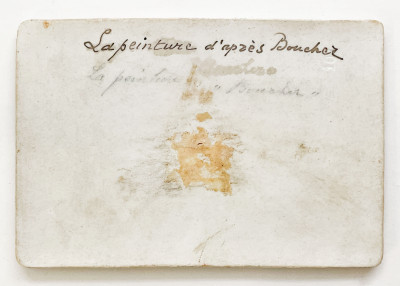 La peinture d'après Boucher
La peinture
" Boucher "